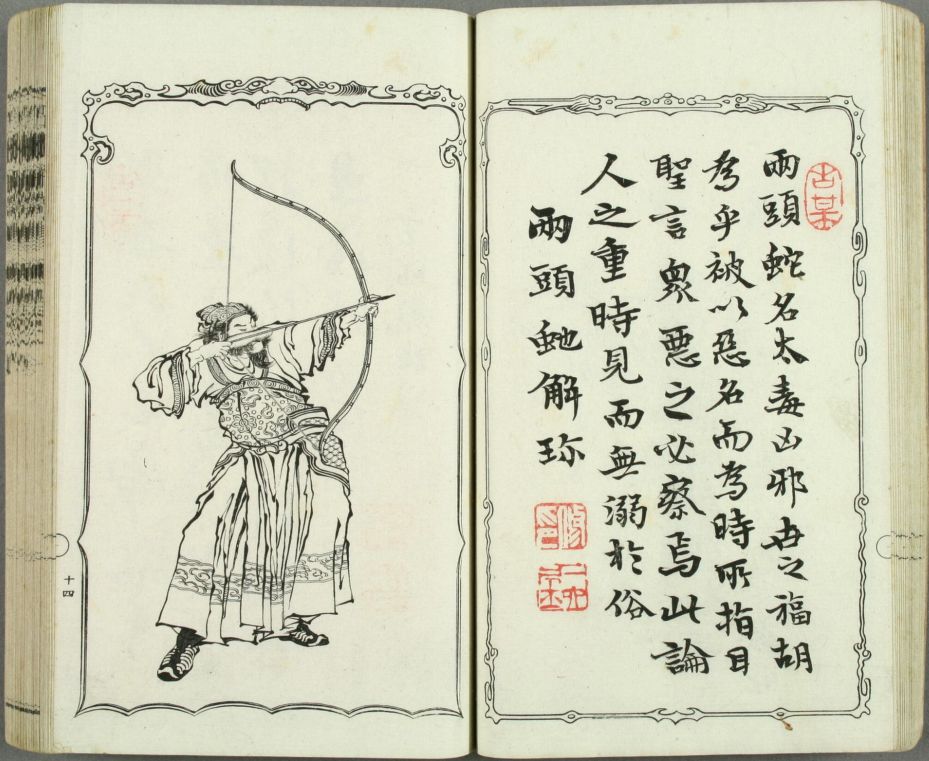 古某
兩頭蛇名太毒凶邪世之福胡
為乎被以惡名而為時所指目
聖言衆惡之必察焉此論
人之重時見而無溺於俗
兩頭虵解珎
十四